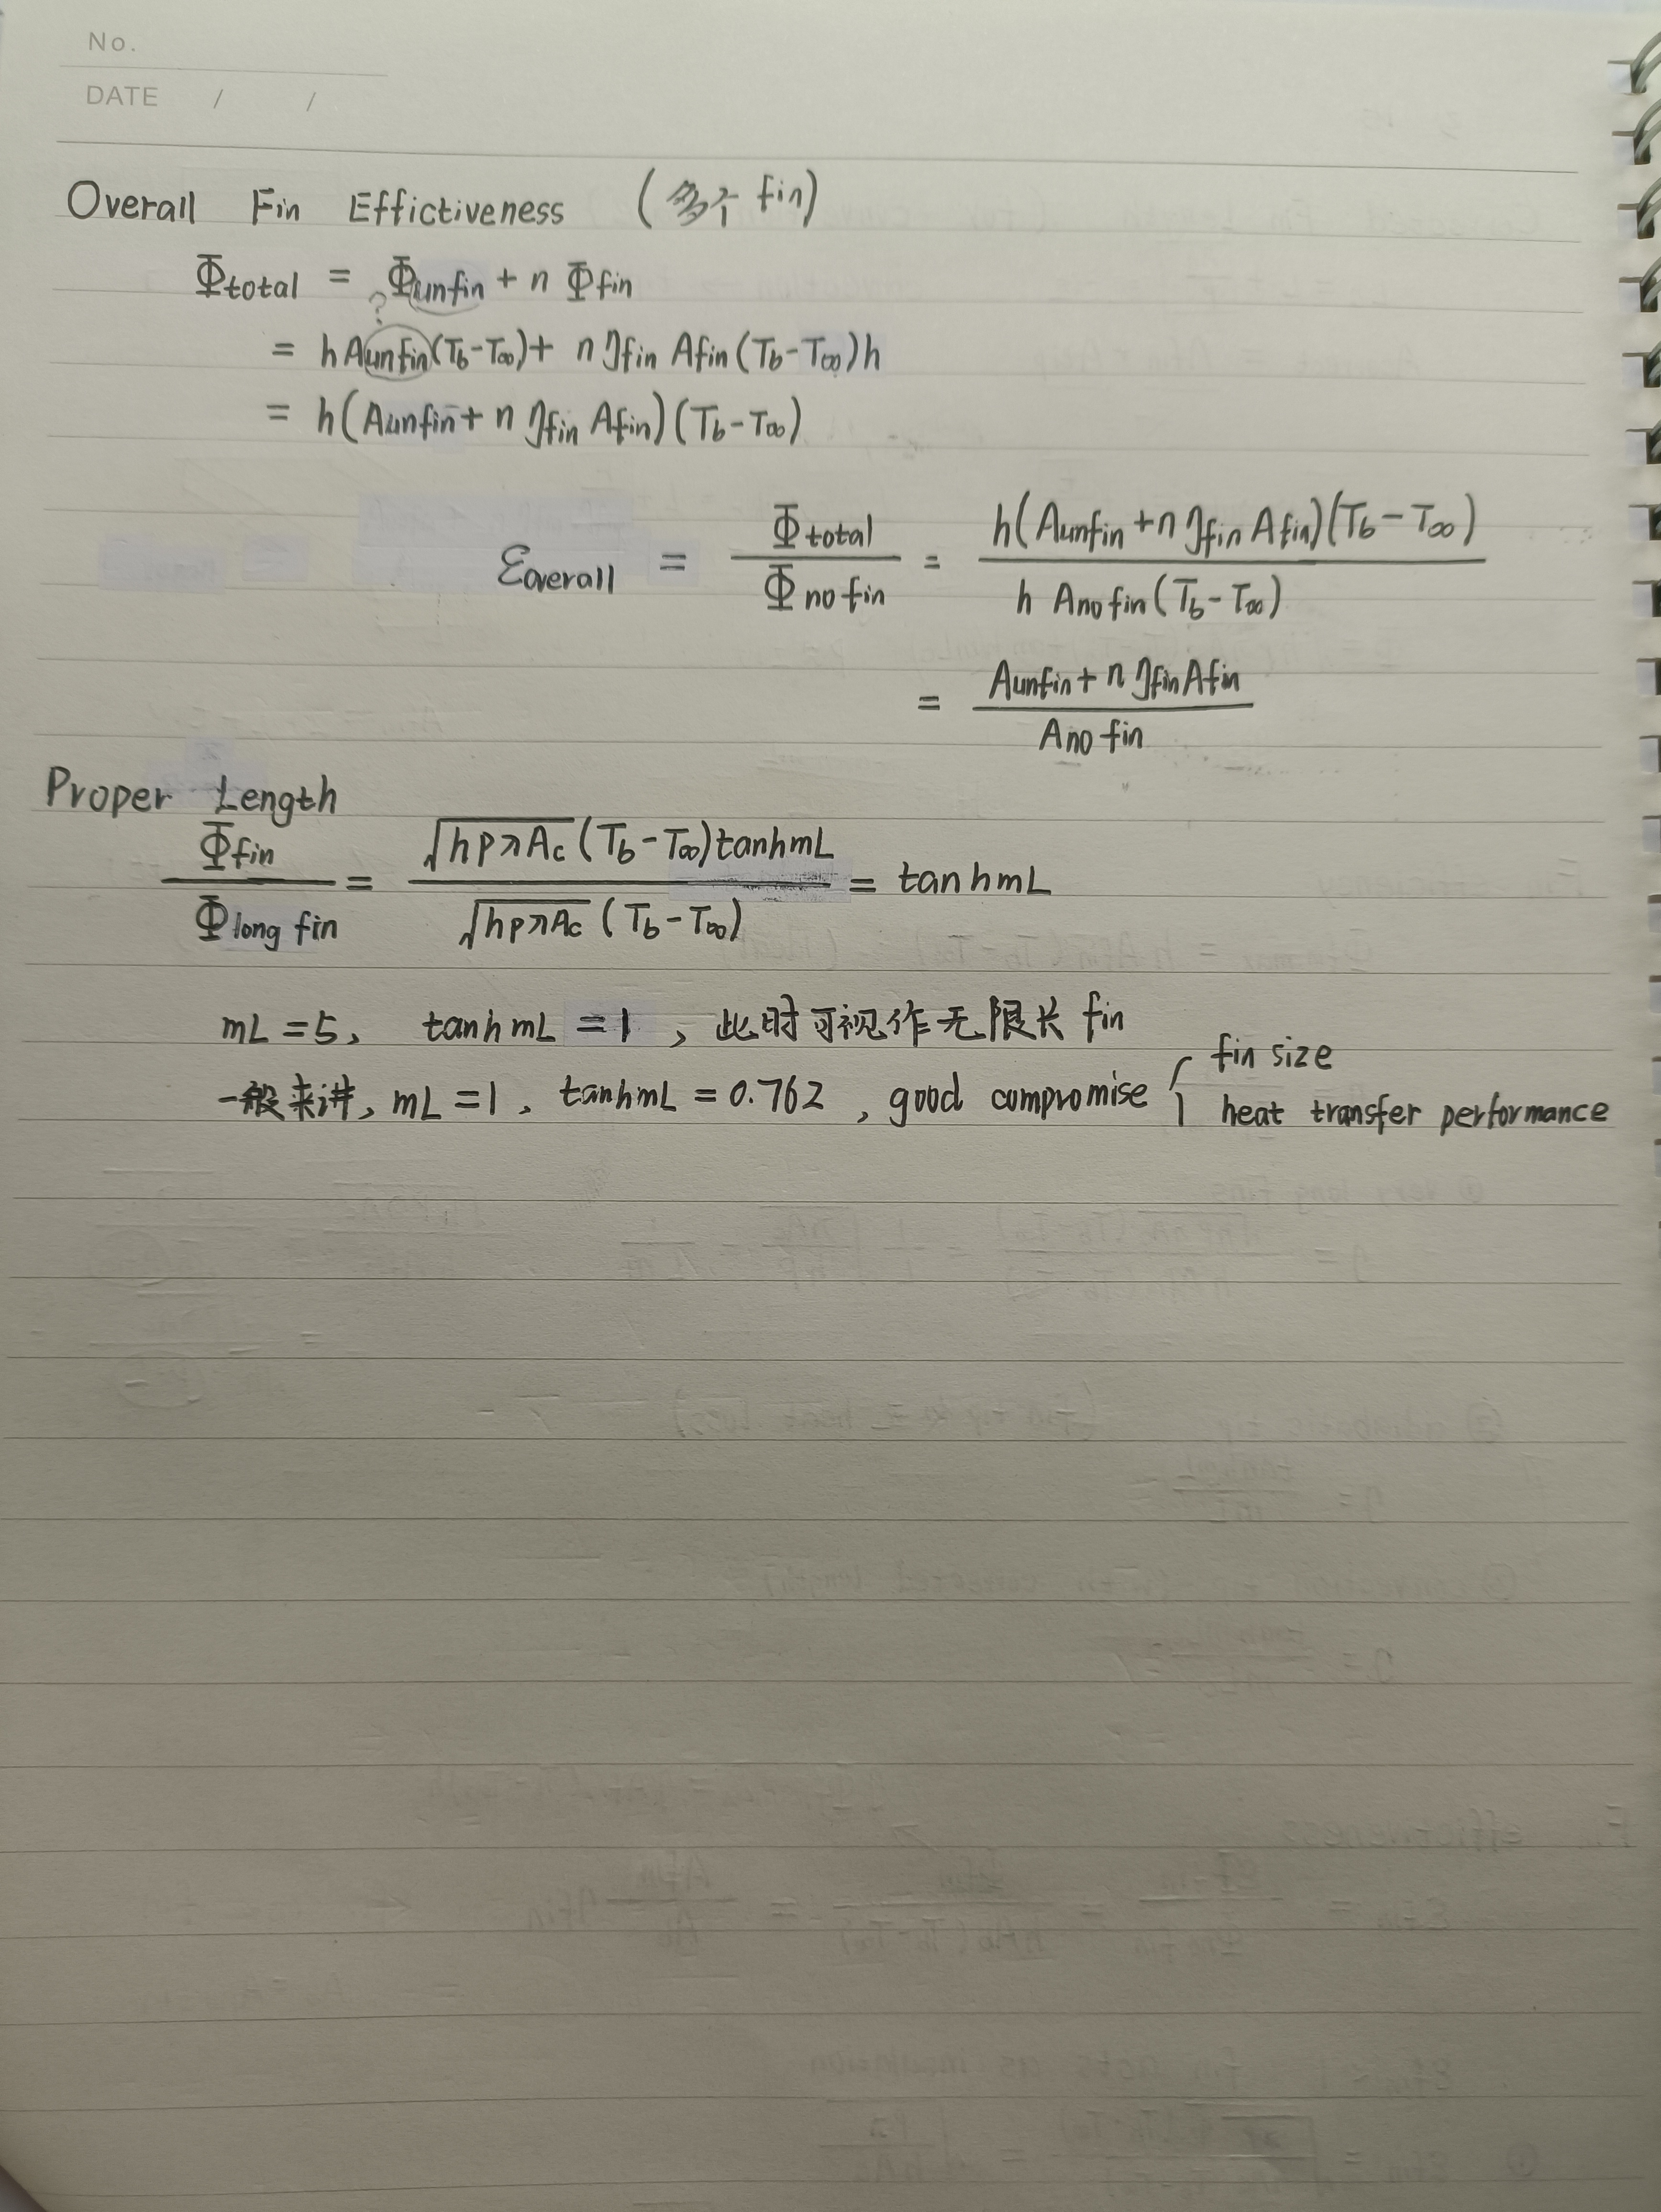 No.
DATE / /
Overall Fin Effictiveness (多个 fin)
Φtotal = Φunfin + n Φfin
?
= h Aunfin (Tb-T∞) + n ηfin Afin (Tb-T∞) h
= h (Aunfin + n ηfin Afin) (Tb-T∞)
εoverall = Φtotal / Φno fin = h(Aunfin + n ηfin Afin)(Tb-T∞) / h Ano fin (Tb-T∞)
= Aunfin + n ηfin Afin / Ano fin
Proper Length
Φfin / Φlong fin = √hpλAc (Tb-T∞) tanhmL / √hpλAc (Tb-T∞) = tanhmL
mL = 5, tanh mL = 1, 此时可视作无限长 fin
一般来讲, mL = 1, tanhmL = 0.762, good compromise { fin size
heat transfer performance